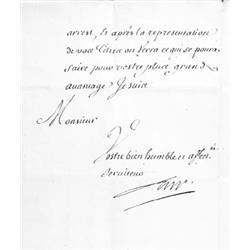 arrest, Et après la representation
de voce titres on verra ce qui se pourra
faire pour vostre plus grand
avantage Je suis
Monsieur
Vostre bien humble et affect.né
serviteur